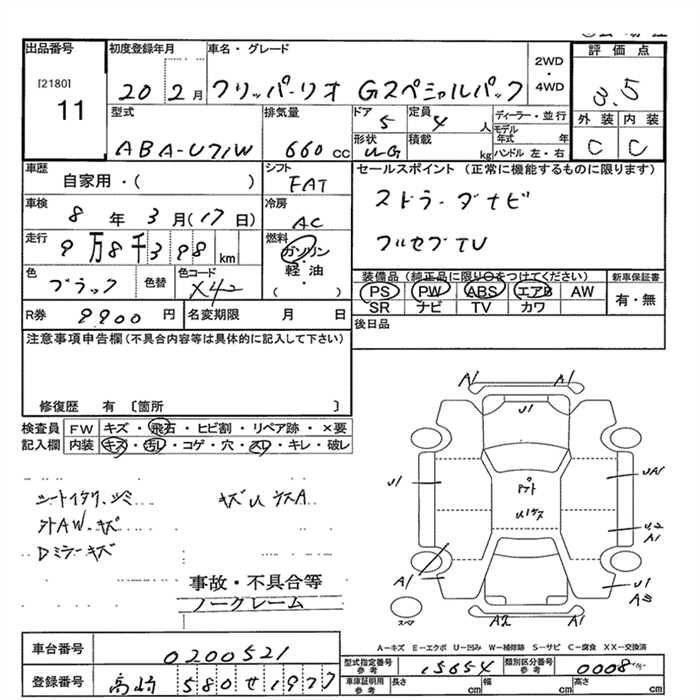 出品番号 初度登録年月 車名・グレード 2WD・4WD 評価点
[2180] 11 20年 2月 フリッパーリオ Gスペシャルパック 3.5
型式 排気量 ドア 定員 ディーラー・並行 外装 内装
ABA-U71W 660cc 5 4人 モデル年式 年 C C
形状 積載 kg ハンドル 左・右
車歴 シフト セールスポイント (正常に機能するものに限ります)
自家用・( ) FAT
車検 冷房
8年 3月(17日) AC ストラーダナビ
走行 燃料
9万8千398km ガソリン・軽油 フルセグTV
( )
色 色替 色コード 装備品(純正品に限り○をつけてください) 新車保証書
ブラック X42 PS PW ABS エアB AW 有・無
SR ナビ TV カワ
R券 9900円 名変期限 月 日 後日品
注意事項申告欄(不具合内容等は具体的に記入して下さい)
修復歴 有 [箇所 ]
検査員 FW キズ・飛石・ヒビ割・リペア跡・×要
記入欄 内装 キズ・汚レ・コゲ・穴・スレ・キレ・破レ
シートイタミ・シミ キズU
外AW.キズ
Dミラーキズ
事故・不具合等
ノークレーム
A1 A1
U1
U1 UA1
U1
U2
A1
A1 U1
A2 A1
スペア
A-キズ E-エクボ U-凹み W-補修跡 S-サビ C-腐食 XX-交換済
車台番号 0200521
型式指定番号 参考 15654 類別区分番号 参考 0008
登録番号 高崎 580 せ 1977
車庫証明用 参考 長さ cm 幅 cm 高さ cm